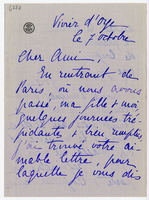 Vivier d'Oye
le 7 octobre
Cher Ami
En rentrant de
Paris, où nous avons
passé, ma fille & moi,
quelques journées tré-
pidantes & bien remplies,
j'ai trouvé votre ai-
mable lettre, pour
laquelle je vous dis